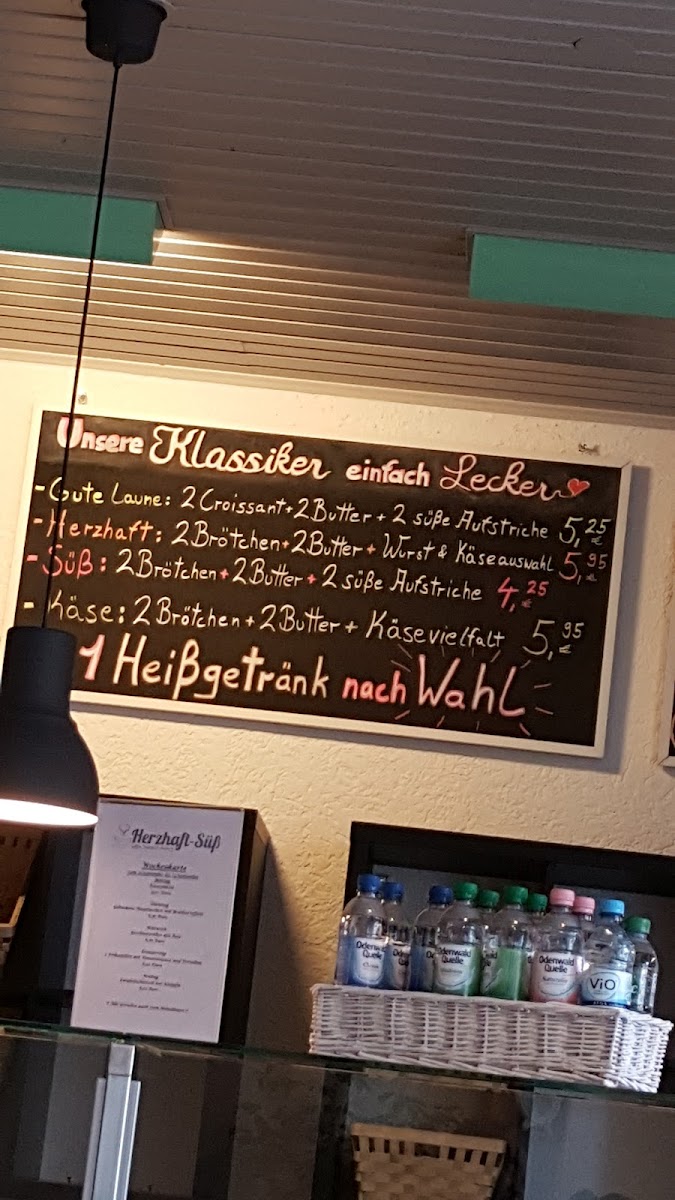 Unsere Klassiker einfach Lecker
- Gute Laune: 2 Croissant + 2 Butter + 2 süße Aufstriche 5,25 €
- Herzhaft: 2 Brötchen + 2 Butter + Wurst & Käseauswahl 5,95 €
- Süß: 2 Brötchen + 2 Butter + 2 süße Aufstriche 4,25 €
- Käse: 2 Brötchen + 2 Butter + Käsevielfalt 5,95 €
1 Heißgetränk nach Wahl
Herzhaft-Süß
Wochenkarte
Montag
Dienstag
Mittwoch
Donnerstag
Freitag
Odenwald
Quelle
Odenwald
Quelle
Odenwald
Quelle
Odenwald
Quelle
ViO